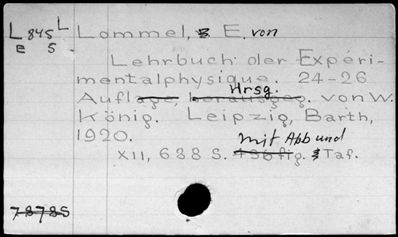 L 845 L Lommel, & E. von
E 5 Lehrbuch der Experi-
mentalphysique. 24-26
Auflage, herausgeg. Hrsg. von W.
König. Leipzig, Barth,
1920.
XII, 638 S. 496 fig. mit Abb und & Taf.
78785